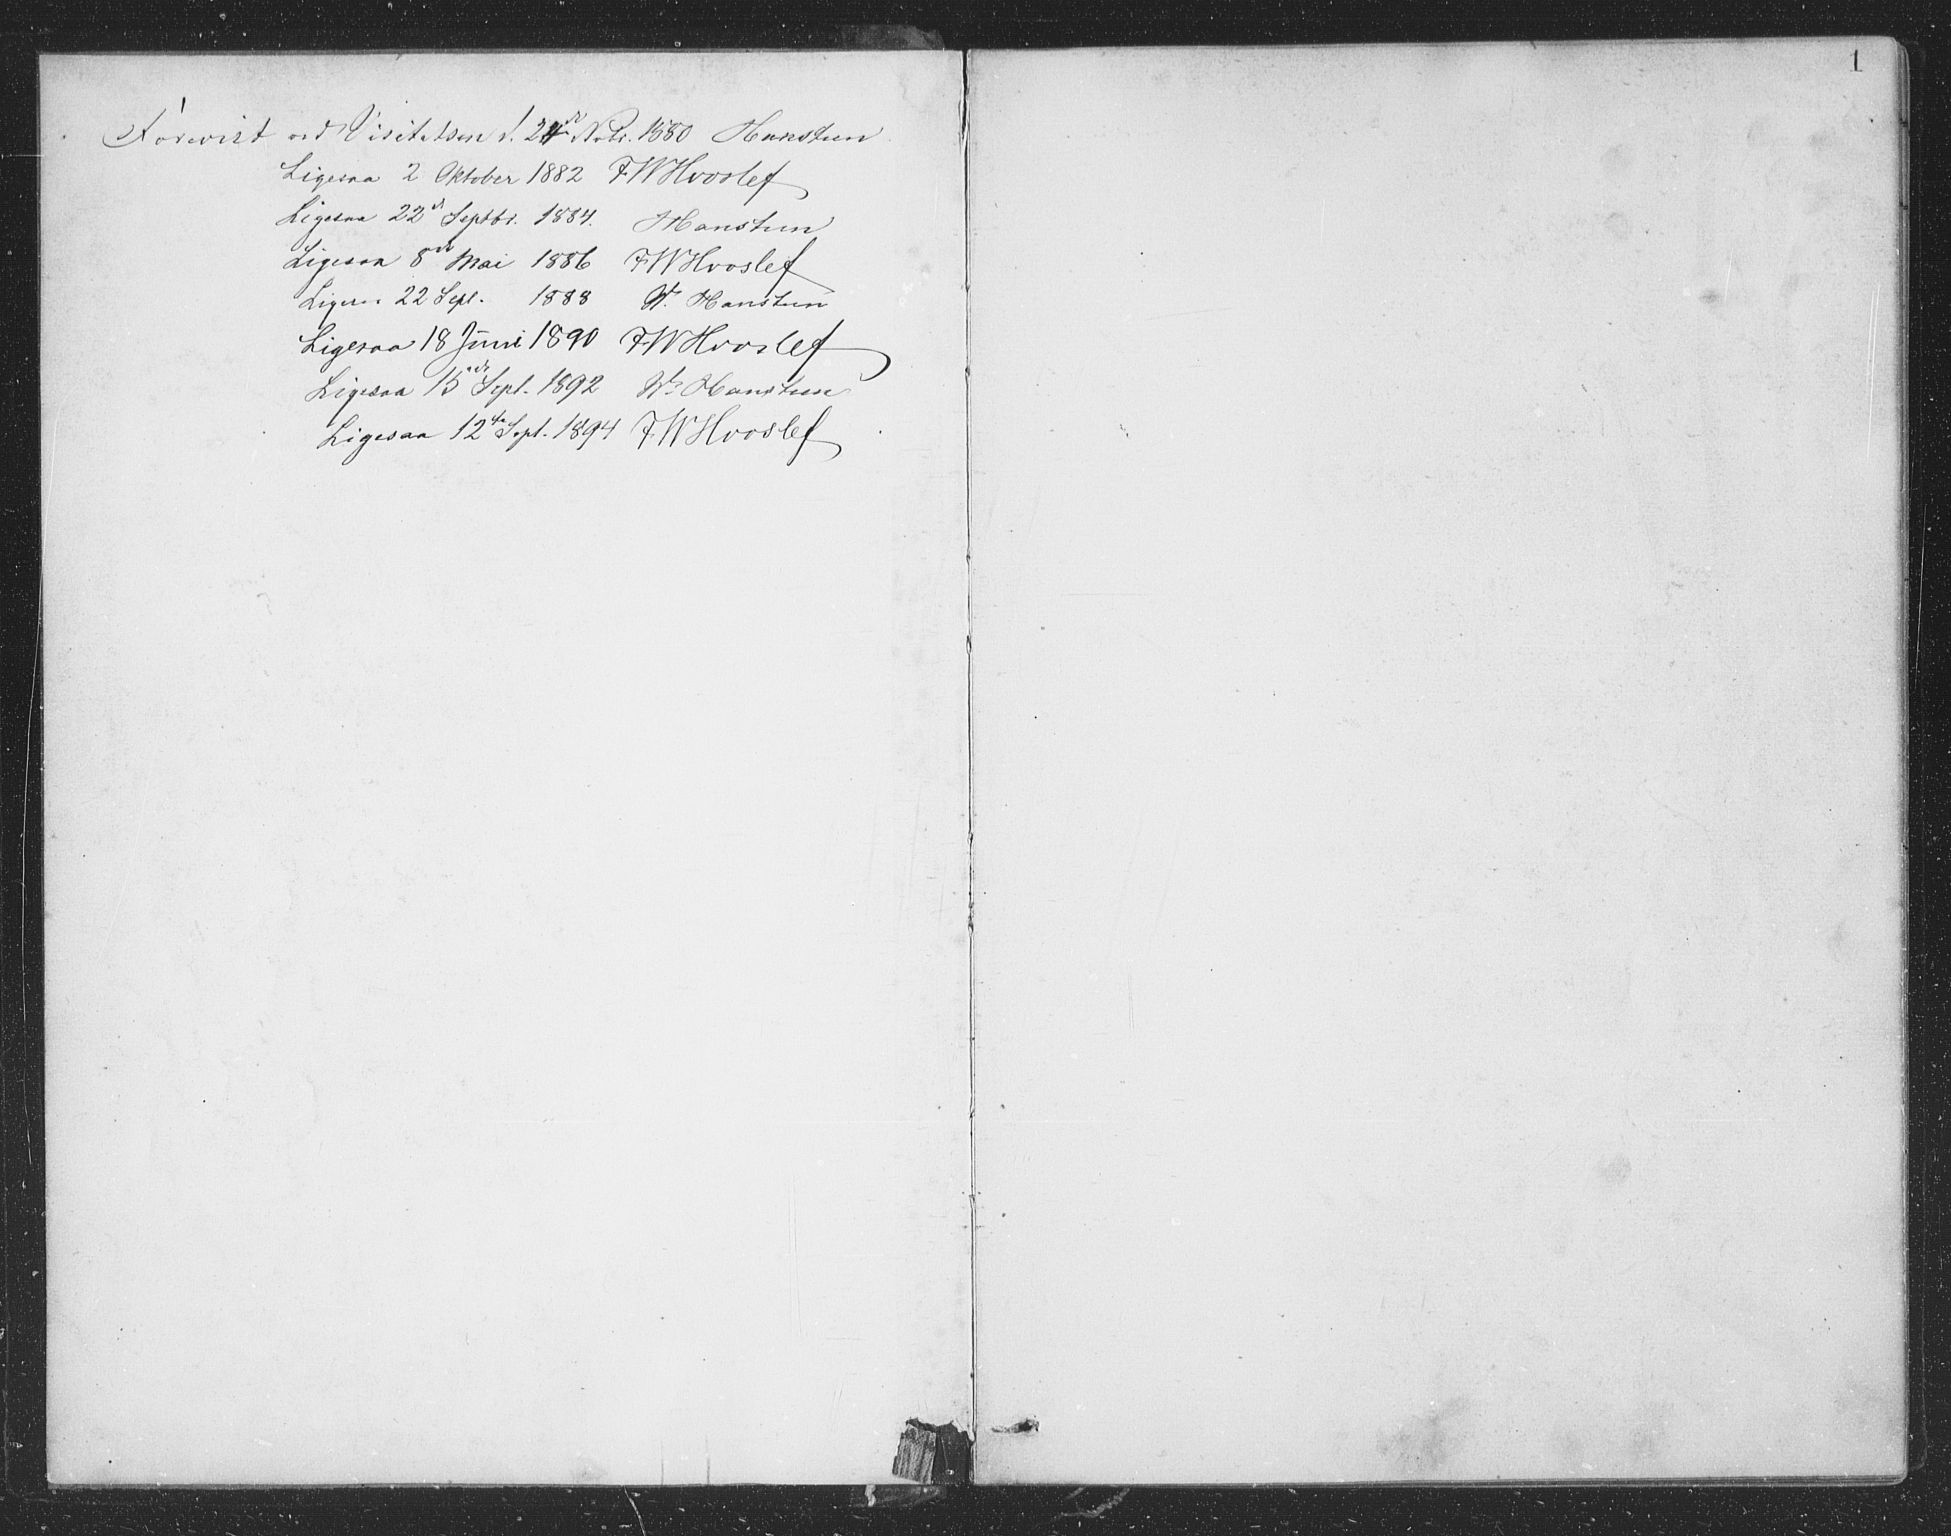 Forevist ved Visitatsen d. 24de Novbr. 1880 Hansteen
Ligesaa 2 Oktober 1882 FWHvoslef
Ligesaa 22d Septbr. 1884. Hansteen
Ligesaa 8de Mai 1886 FWHvoslef
Ligesaa 22 Sept. 1888 W. Hansteen
Ligesaa 18 Juni 1890 FWHvoslef
Ligesaa 15de Sept. 1892 W. Hansteen
Ligesaa 12te Sept. 1894 FWHvoslef
1